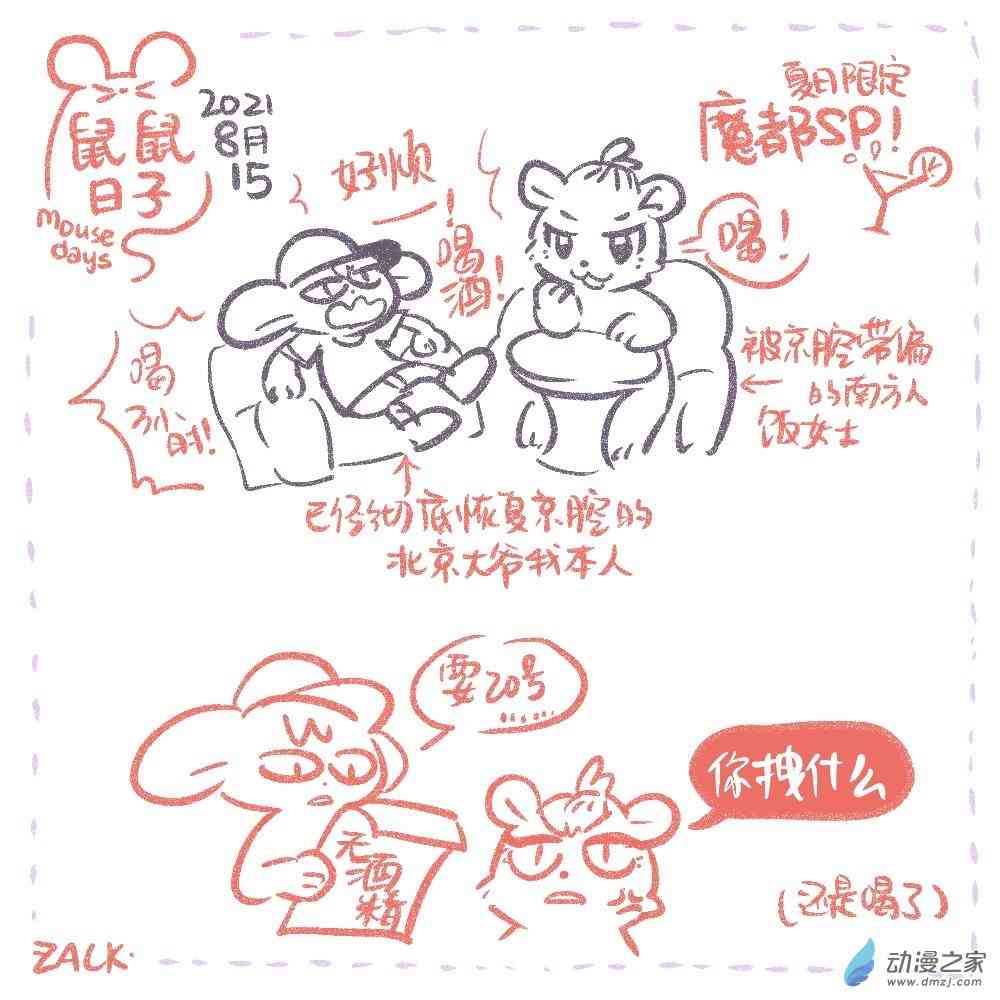 鼠鼠
日子
mouse
days
2021
8月
15
夏日限定
魔都SP!
好烦
!
喝
酒!
喝!
喝
3小
时!
被京腔带偏
的南方人
饭女士
已经彻底恢复京腔的
北京大爷我本人
要20号
……
你拽什么
无
酒
精
(还是喝了)
ZALK.
动漫之家
www.dmzj.com